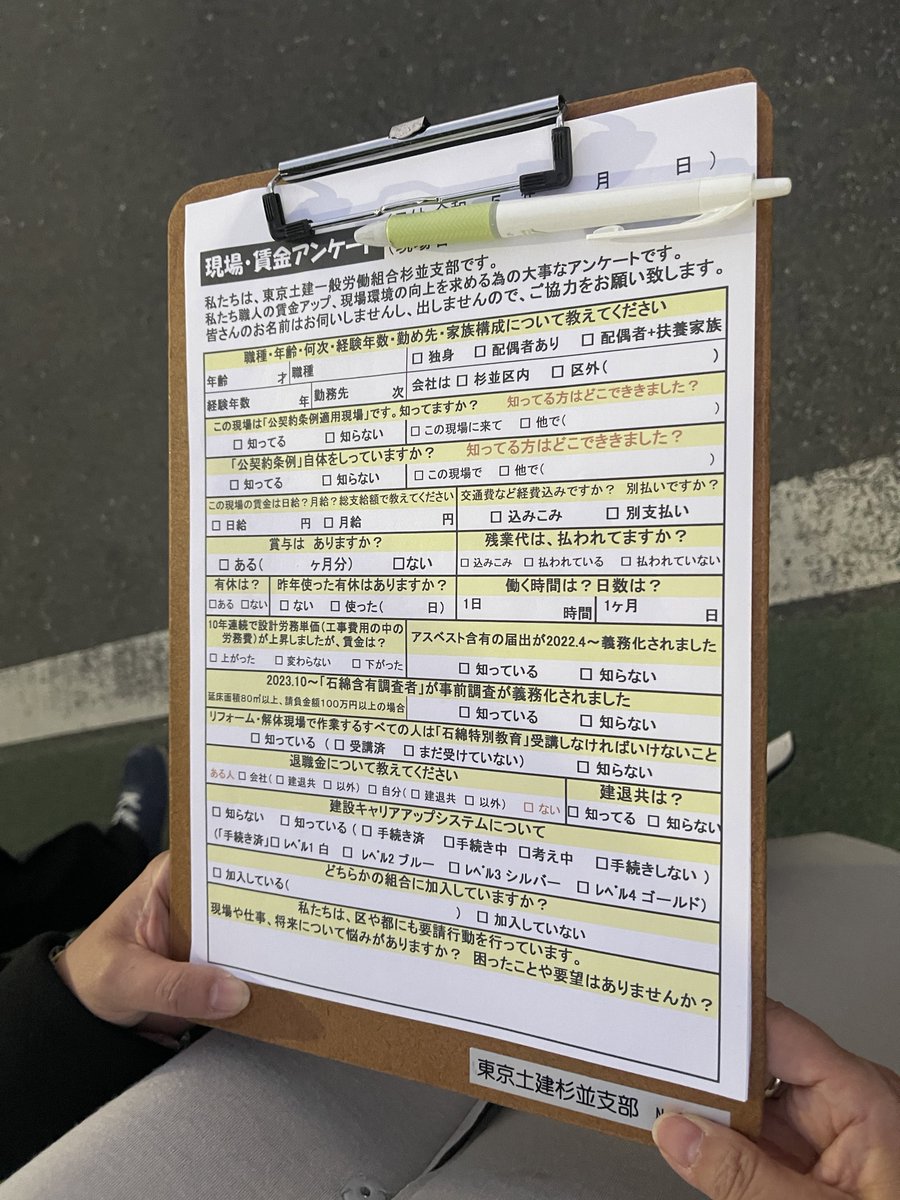 5 月 日 )
現場・賃金アンケート
私たちは、東京土建一般労働組合杉並支部です。
私たち職人の賃金アップ、現場環境の向上を求める為の大事なアンケートです。
皆さんのお名前はお伺いしませんし、出しませんので、ご協力をお願い致します。
職種・年齢・何次・経験年数・勤め先・家族構成について教えてください
年齢 才 職種 □ 独身 □ 配偶者あり □ 配偶者+扶養家族
経験年数 年 勤務先 次 会社は □ 杉並区内 □ 区外( )
この現場は「公契約条例適用現場」です。知ってますか? 知ってる方はどこでききました?
□ 知ってる □ 知らない □ この現場に来て □ 他で( )
「公契約条例」自体をしっていますか? 知ってる方はどこでききました?
□ 知ってる □ 知らない □ この現場で □ 他で( )
この現場の賃金は日給?月給?総支給額で教えてください 交通費など経費込みですか? 別払いですか?
□ 日給 円 □ 月給 円 □ 込みこみ □ 別支払い
賞与は ありますか? 残業代は、払われてますか?
□ ある( ヶ月分) □ない □ 込みこみ □ 払われている □ 払われていない
有休は? 昨年使った有休はありますか? 働く時間は?日数は?
□ある □ない □ ない □ 使った( 日) 1日 時間 1ヶ月 日
10年連続で設計労務単価(工事費用の中の
労務費)が上昇しましたが、賃金は? アスベスト含有の届出が2022.4~義務化されました
□ 上がった □ 変わらない □ 下がった □ 知っている □ 知らない
2023.10~「石綿含有調査者」が事前調査が義務化されました
延床面積80㎡以上、請負金額100万円以上の場合 □ 知っている □ 知らない
リフォーム・解体現場で作業するすべての人は「石綿特別教育」受講しなければいけないこと
□ 知っている ( □ 受講済 □ まだ受けていない) □ 知らない
退職金について教えてください 建退共は?
ある人 □ 会社( □ 建退共 □ 以外) □ 自分( □ 建退共 □ 以外) □ ない □ 知ってる □ 知らない
建設キャリアアップシステムについて
□ 知らない □ 知っている ( □ 手続き済 □手続き中 □考え中 □手続きしない )
(「手続き済」□ レベル1 白 □ レベル2 ブルー □ レベル3 シルバー □ レベル4 ゴールド)
どちらかの組合に加入していますか?
□ 加入している( ) □ 加入していない
私たちは、区や都にも要請行動を行っています。
現場や仕事、将来について悩みがありますか? 困ったことや要望はありませんか?
東京土建杉並支部